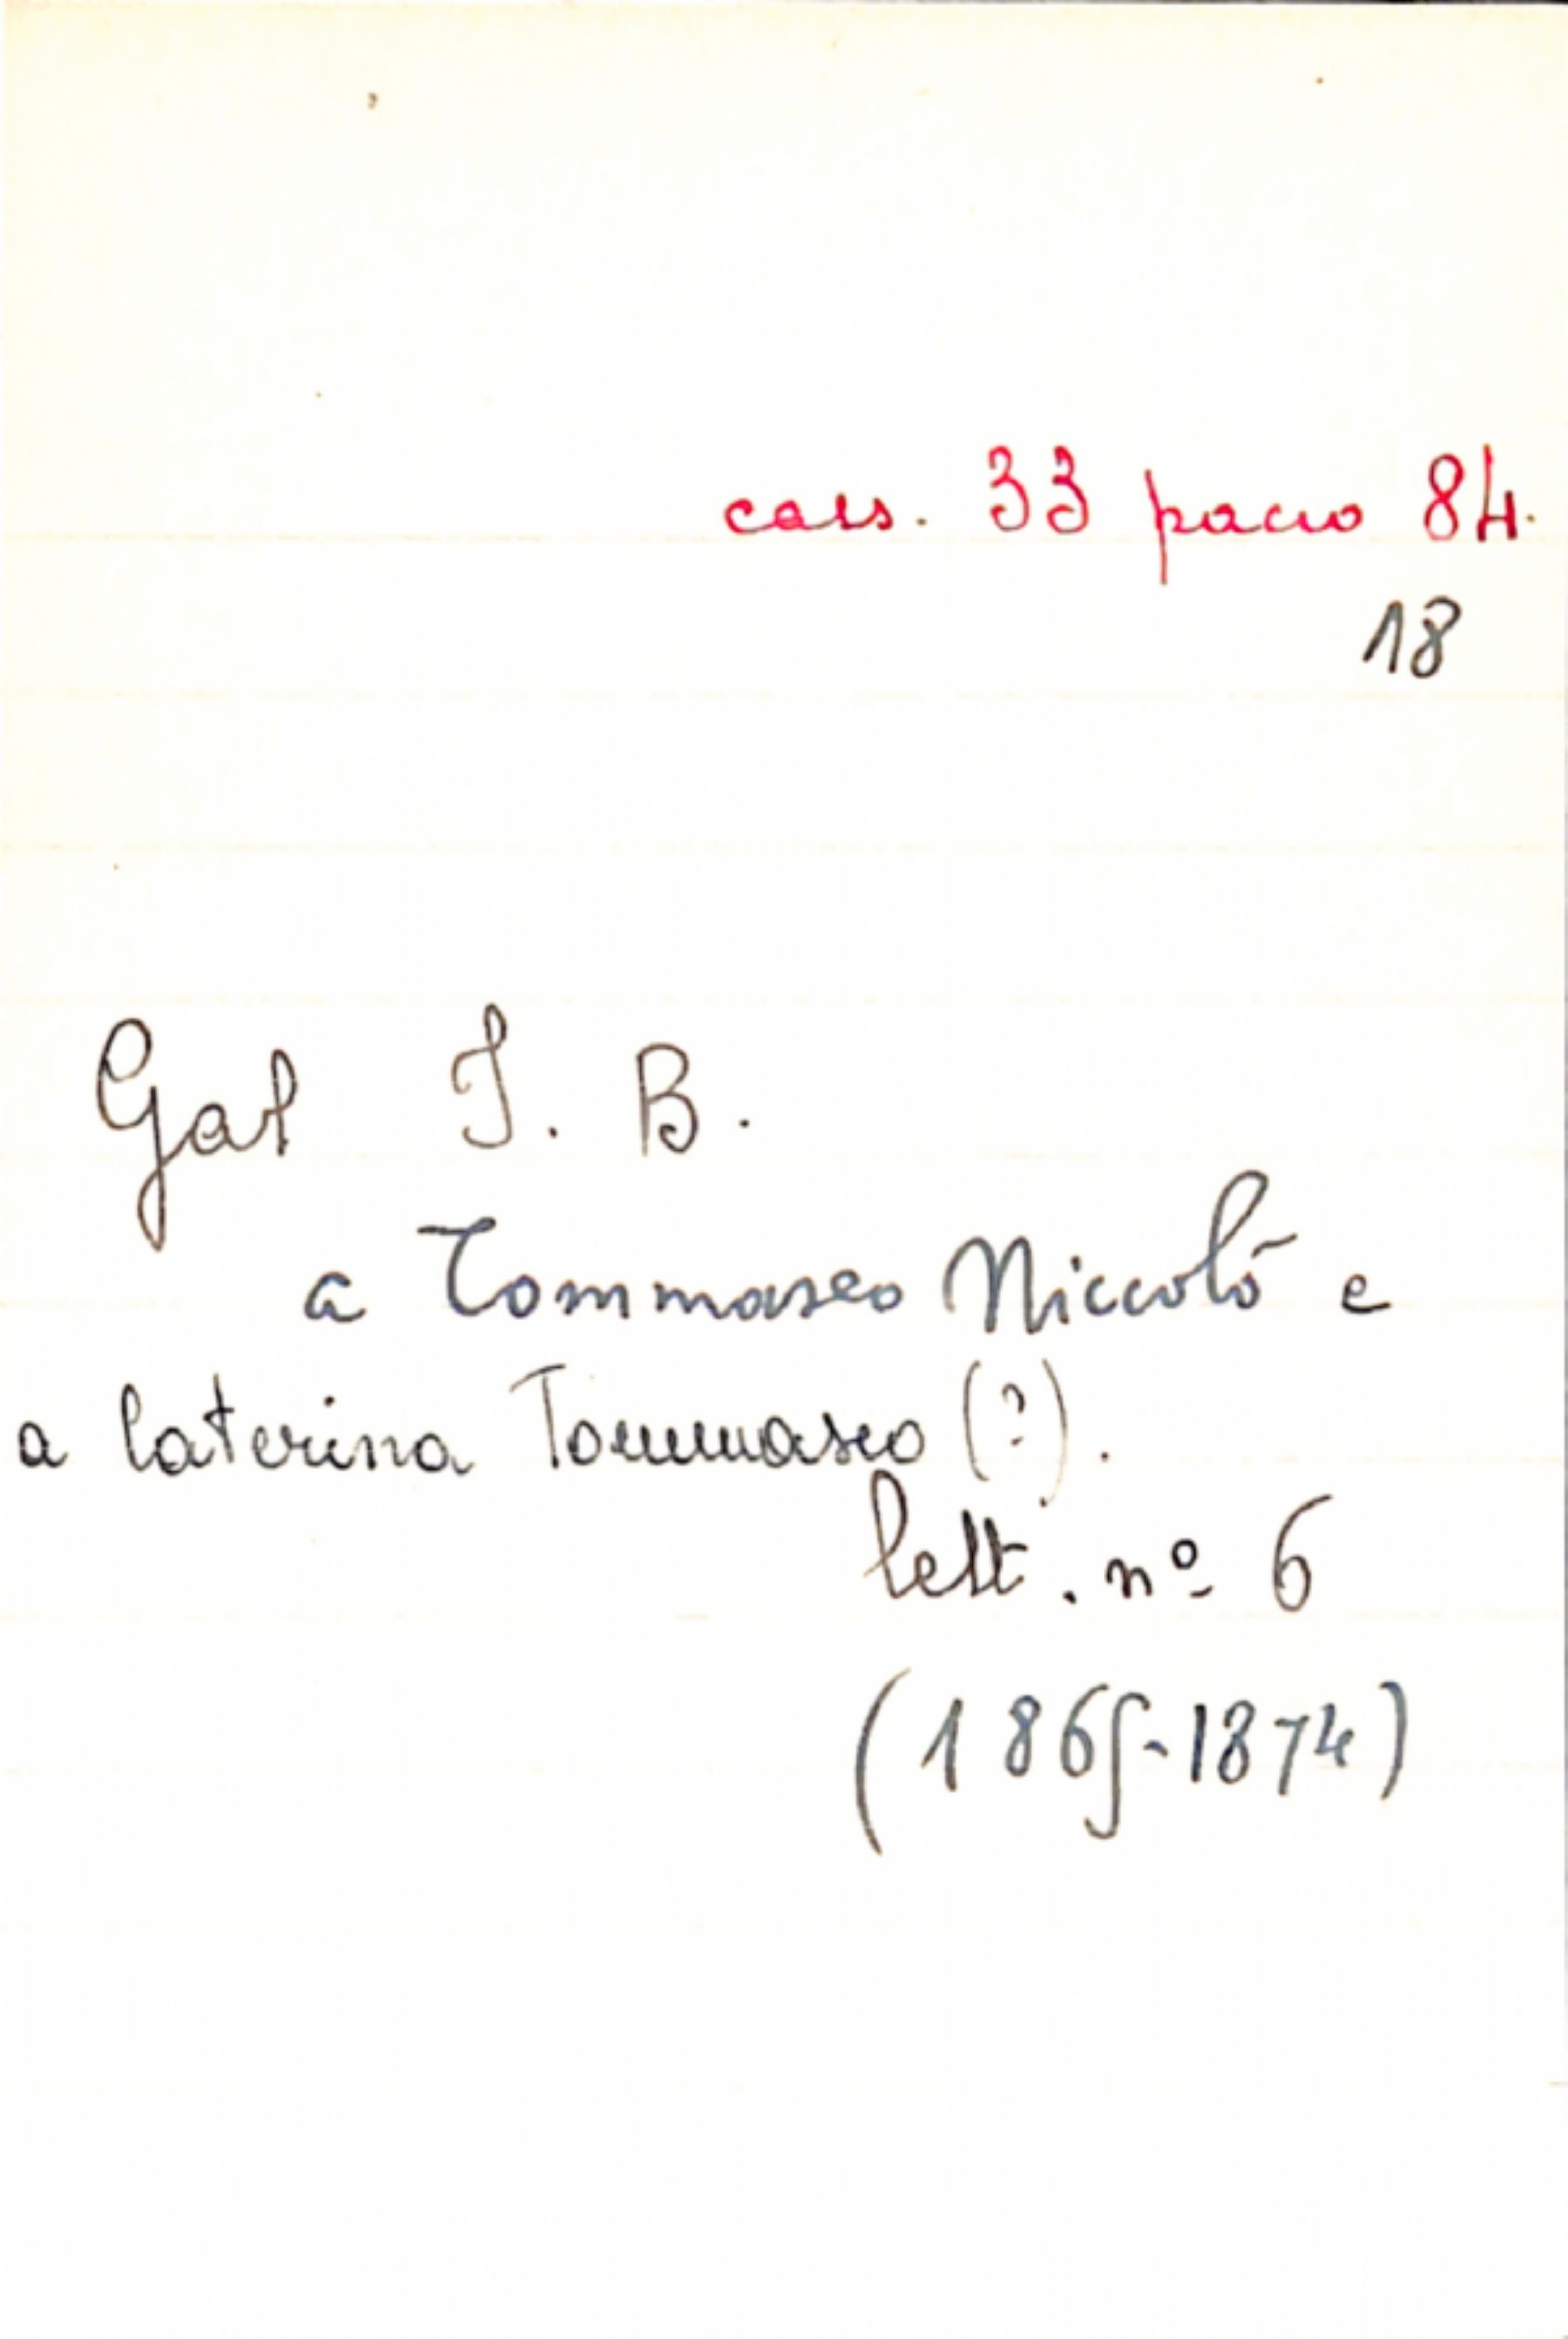 cass. 33 pacco 84.
18
Gal J. B.
a Tommaseo Niccolò e
a Caterina Tommaseo (?).
lett. nº 6
(1865-1874)